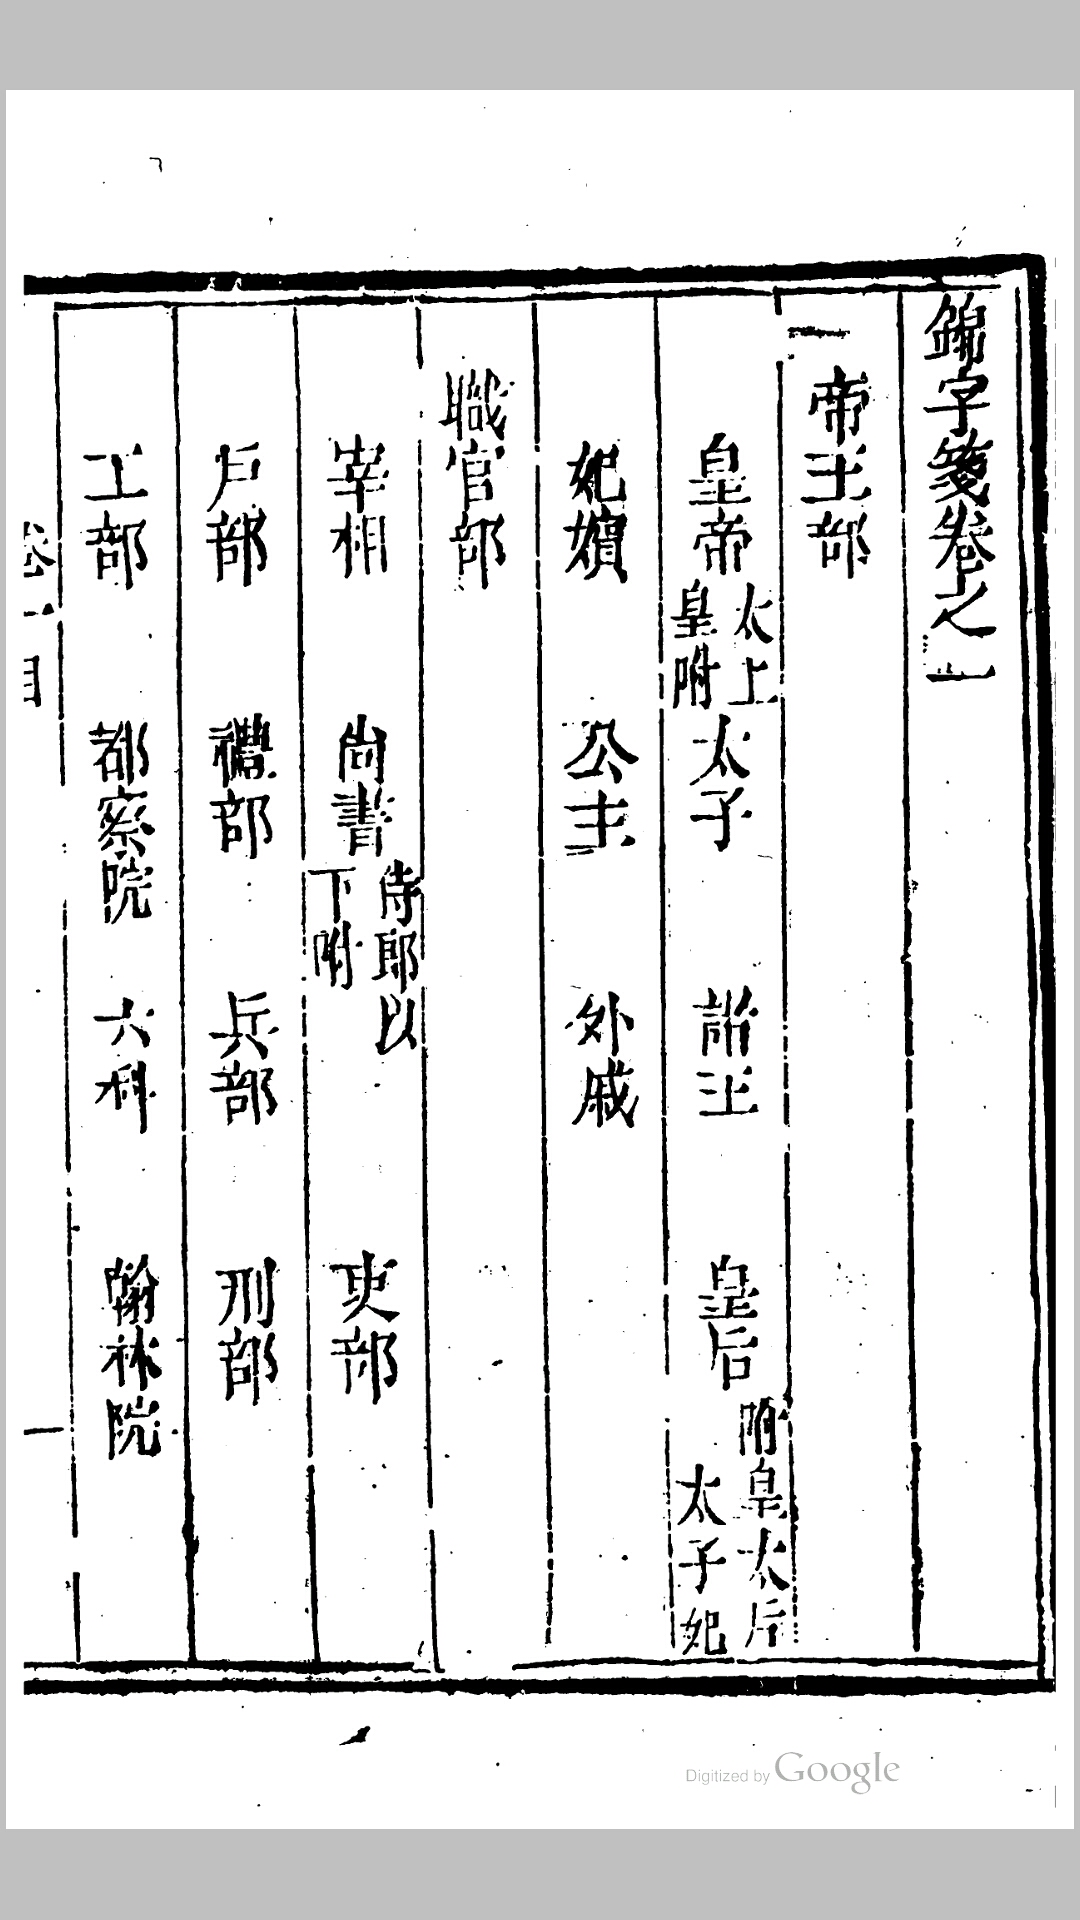 錦字箋卷之一
一帝王部
皇帝 太上皇附 太子 諸王 皇后 附皇太后太子妃
妃嬪 公主 外戚
職官部
宰相 尚書 侍郎以下附 吏部
戶部 禮部 兵部 刑部
工部 都察院 六科 翰林院
卷一目 一
Digitized by Google